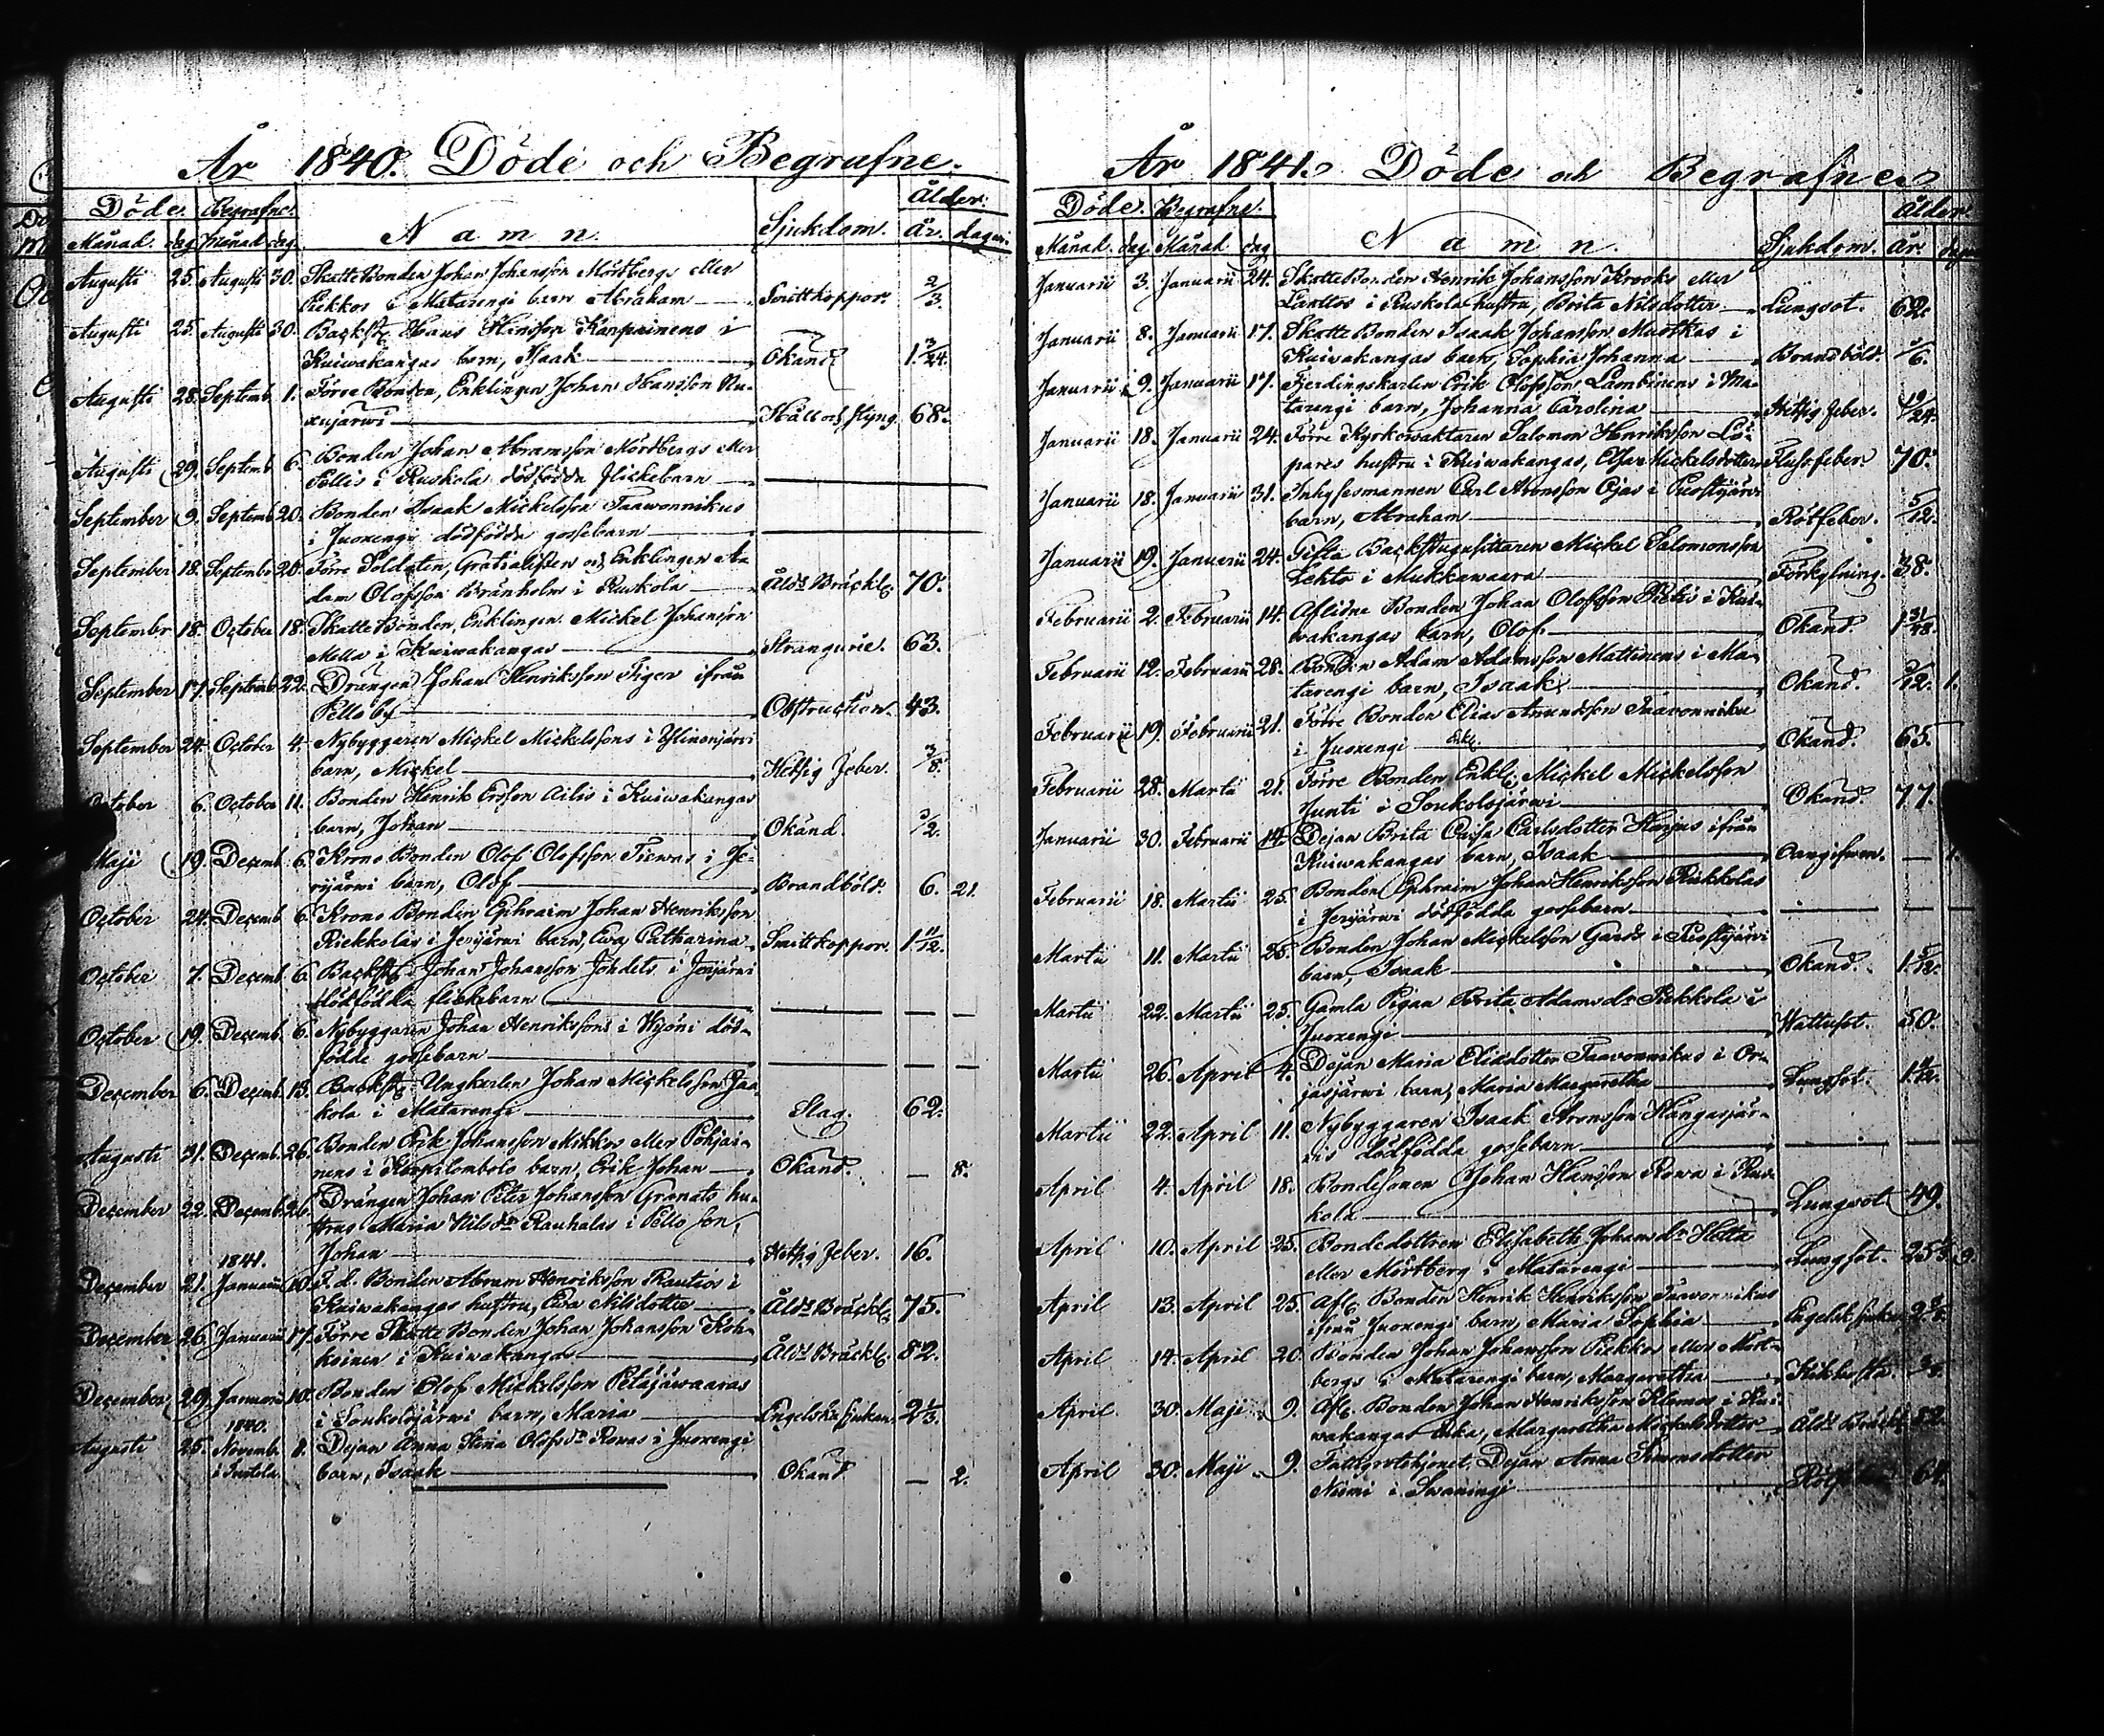 År 1840. Döde och Begrafne.
Döde. Begrafne. Namn. Sjukdom. Ålder.
Månad. dag Månad dag. År. dagar.
Augusti 25. Augusti 30. SkatteBonden Johan Johansson Mörtbergs eller
Piekkos i Matarengi barn Abraham Smittkoppor. 2/3.
Augusti 25. Augusti 30. Backst. Hans Hansson Kanpainens i
Kuiwakangas barn, Isaak Okänd 1 3/24.
Augusti 28. Septemb. 1. Förre Bonden, Enklingen Johan Hansson Ru-
xujärwi Håll och styng. 68.
Augusti 29. Septemb. 6. Bonden Johan Abramsson Mörtbergs eller
Pellis i Ruskola dödfödda flickebarn
September 9. Septemb. 20. Bonden Isaak Mickelsson Taawonnikus
i Juoxengi dödfödda gossebarn
September 18. September 20. Förre Soldaten, Gratialisten och Enklingen A-
dam Olofsson Brånholm i Ruskola Åld. Bräckl. 70.
Septembr 18. October 18. Skatte Bonden, Enklingen Mickel Johansson
Mella i Kuiwakangas Strangurie. 63.
September 17. Septemb. 22. Drängen Johan Henriksson Tiger ifrån
Pello by Obstruction. 43.
September 24. October 4. Nybyggaren Mickel Mickelssons i Ylinenjärwi
barn, Mickel Hetsig feber. 3/8.
October 6. October 11. Bonden Henrik Ersson Ailis i Kuiwakangas
barn, Johan Okänd.
Maji 19. Decemb. 6. Krono Bonden Olof Olofsson Tiewas i Je-
rijärwi barn, Olof Brandböld. 6. 21.
October 24. Decemb. 6. Krono Bonden Ephraim Johan Henriksson
Riekkolas i Jerijärwi barn, Ewa Catharina Smittkoppor. 1 11/12.
October 7. Decemb. 6. Backst. Johan Johansson Johdets i Jerijärwi
dödfödda flickebarn
October 19. Decemb. 6. Nybyggaren Johan Henrikssons i död-
födde gossebarn
December 6. Decemb. 13. Backst. Ungkarlen Johan Mickelsson Jaa-
kola i Matarengi Slag. 62.
Augusti 31. Decemb. 26. Bonden Erik Johansson Mikkos eller Pohjai-
nens i Korpilombolo barn, Erik Johan Okänd. — 8.
December 22. Decemb. 26. Drängen Johan Peter Johansson Granats hu-
strus Maria Nilsdr Rauhalas i Pello son,
Johan Hetsig feber. 16.
1841.
December 21. Januarii 10. F. d. Bonden Abram Henriksson Rautios i
Kuiwakangas hustru, Ewa Nilsdotter Åld. Bräckl. 75.
December 26. Januarii 17. Förre Skatte Bonden Johan Johansson Koh-
koinen i Kuiwakangas Åld. Bräckl. 82.
December 29. Januarii 10. Bonden Olof Mickelsson Petäjäwaaras
i Soukolojärwi barn, Maria Engelska sjukan. 2 1/3.
1840.
Augusti 25. Novemb. 8. Dejan Anna Stina Olofsdr Rowas i Juoxengi
barn, Isaak Okänd — 2.
År 1841. Döde och Begrafne.
Döde. Begrafne. Namn. Sjukdom. Ålder
Månad. dag Månad dag År.
Januarii 3. Januarii 24. SkatteBonden Henrik Johansson Krooks eller
i Ruskola hustru, Brita Nilsdotter Lungsot. 62.
Januarii 8. Januarii 17. Skatte Bonden Isaak Johansson Muotkas i
Kuiwakangas barn, Sophia Johanna Brandböld.
Januarii 9. Januarii 17. Fjerdingskarlen Erik Olofssons Lambinens i Ma-
tarengi barn, Johanna Carolina Hetsig feber. 19/24.
Januarii 18. Januarii 24. Förre Kyrkowaktaren Salomon Henriksson Lö-
pares hustru i Kuiwakangas, Elsa Mickelsdotter Fluss feber. 70.
Januarii 18. Januarii 31. Inhysesmannen Carl Aronsson Ojas i
barn, Abraham Rötfeber. 5/12.
Januarii 19. Januarii 24. Gifta Backstugusittaren Mickel Salomonsson
Lehto i Mukkawaara Förkylning. 38.
Februarii 2. Februarii 14. Aflidne Bonden Johan Olofsson i Kui-
wakangas barn, Olof Okänd. 1 31/48.
Februarii 12. Februarii 28. Bonden Adam Adamsson Mattinens i Ma-
tarengi barn, Isaak Okänd. 1.
Februarii 19. Februarii 21. Förre Bonden Elias Amundsson Taavonniku
i Juoxengi Enkl. Okänd. 65.
Februarii 28. Martii 21. Förre Bonden Enkl. Mickel Mickelsson
Junti i Soukolojärwi Okänd. 77.
Januarii 30. Februarii 14. Dejan Brita Caisa Carlsdotter Harjus ifrån
Kuiwakangas barn, Isaak — 1.
Februarii 18. Martii 25. Bonden Ephraim Johan Henriksson Riekkolas
i Jerijärwi dödfödda gossebarn
Martii 11. Martii 25. Bonden Johan Mickelsson i
barn, Isaak Okänd. 1 5/12.
Martii 22. Martii 25. Gamla Pigan Brita Adamsdr Piekkola i
Juoxengi Wattusot. 50.
Martii 26. April 4. Dejan Maria Eliædotter Taavonnikus i Or-
jasjärwi barn, Maria Margaretha Lungsot.
Martii 22. April 11. Nybyggaren Isaak Aronsson Kangasjär-
wis dödfödda gossebarn
April 4. April 18. Bondesonen Johan Hansson Rowa i Rus-
kola Lungsot. 49.
April 10. April 25. Bondedottren Elisabeth Johansdr Hotta
eller Mörtberg i Matarengi Lungsot.
April 13. April 25. Afl. Bonden Henrik Henriksson Taavonnikus
ifrån Juoxengi barn, Maria Sophia Engelsk sjukan
April 14. April 20. Bonden Johan Johansson Piekkos eller Mört-
bergs i Matarengi barn, Margaretha Kikhosta.
April 30. Maji 9. Afl. Bonden Johan Henriksson Klemos i Kui-
wakangas Enka, Margaretha Mickelsdotter Åld. Bräckl. 82.
April 30. Maji 9. Fattighjonet, Dejan Anna Simonsdotter
Niemi i Swaningi 64.